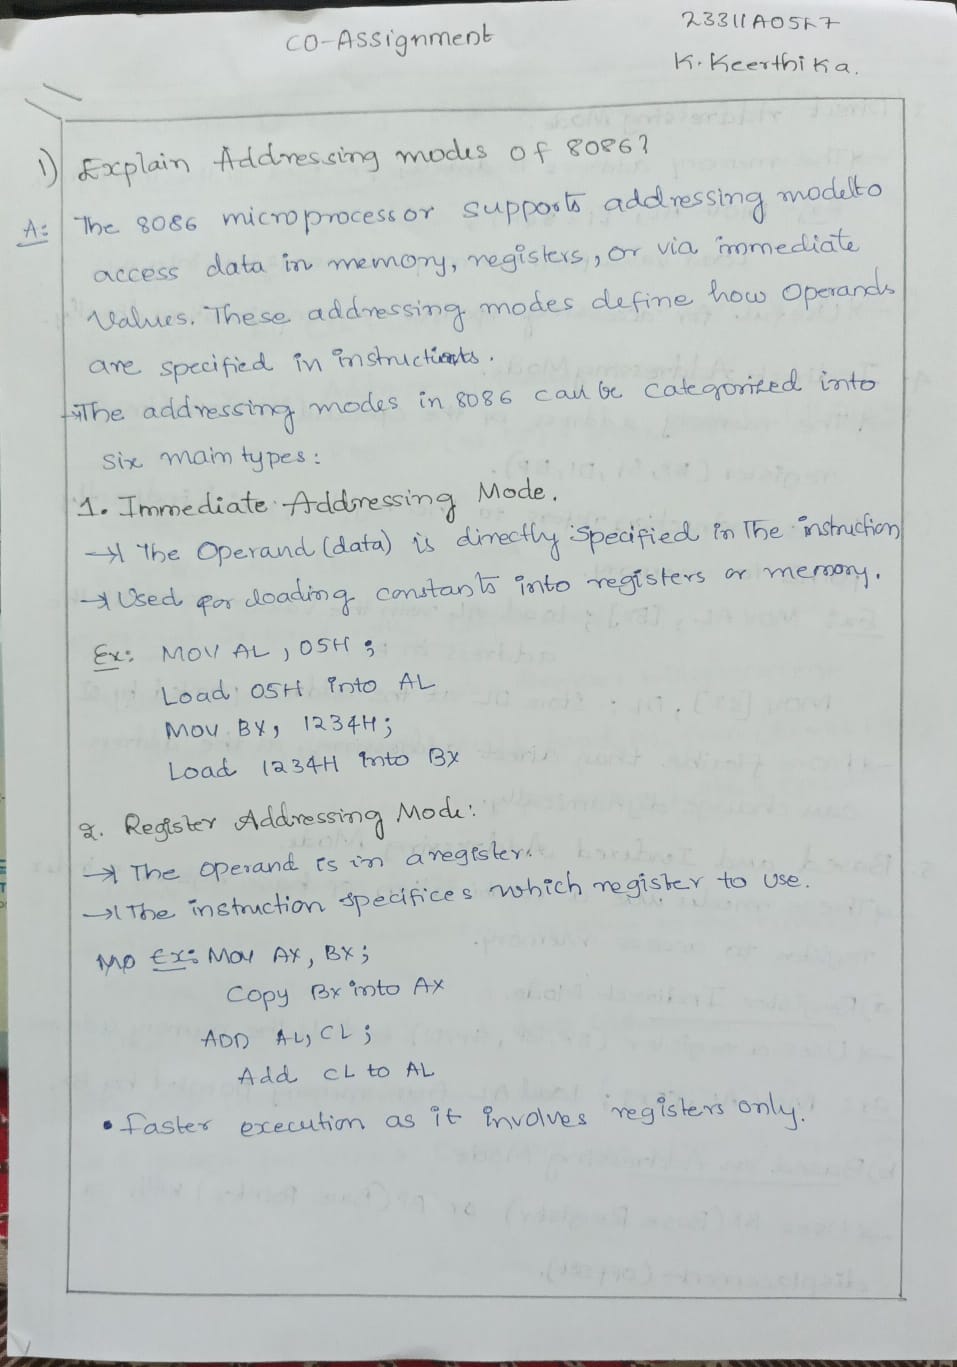 CO-Assignment
23311A05K7
K. Keerthika.
1) Explain Addressing modes of 8086?
A: The 8086 microprocessor supports addressing modelto
access data in memory, registers, or via immediate
Values. These addressing modes define how Operands
are specified in instructions.
→The addressing modes in 8086 can be categorized into
six main types:
1. Immediate Addressing Mode.
→ The Operand (data) is directly specified in The instruction
→ Used for loading constants into registers or memory.
Ex: MOV AL, 05H;
Load 05H into AL
Mov BX, 1234H;
Load 1234H into BX
2. Register Addressing Mode:
→ The operand is in a register.
→ The instruction specifices which register to use.
Mo Ex: Mov AX, BX;
Copy Bx into AX
ADD AL, CL;
Add CL to AL
• faster execution as it involves registers only.